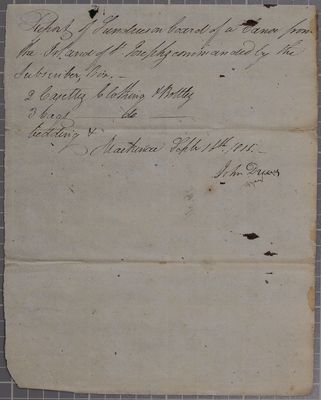 Report of Sundries on board of a Canoe from
the Island of St. Josephs commanded by the
Subscriber, Viz. —
2 Casetts Clothing &
3 Bags — do —
bedding &
Mackinac Septr 16th, 1815. —
John Drew